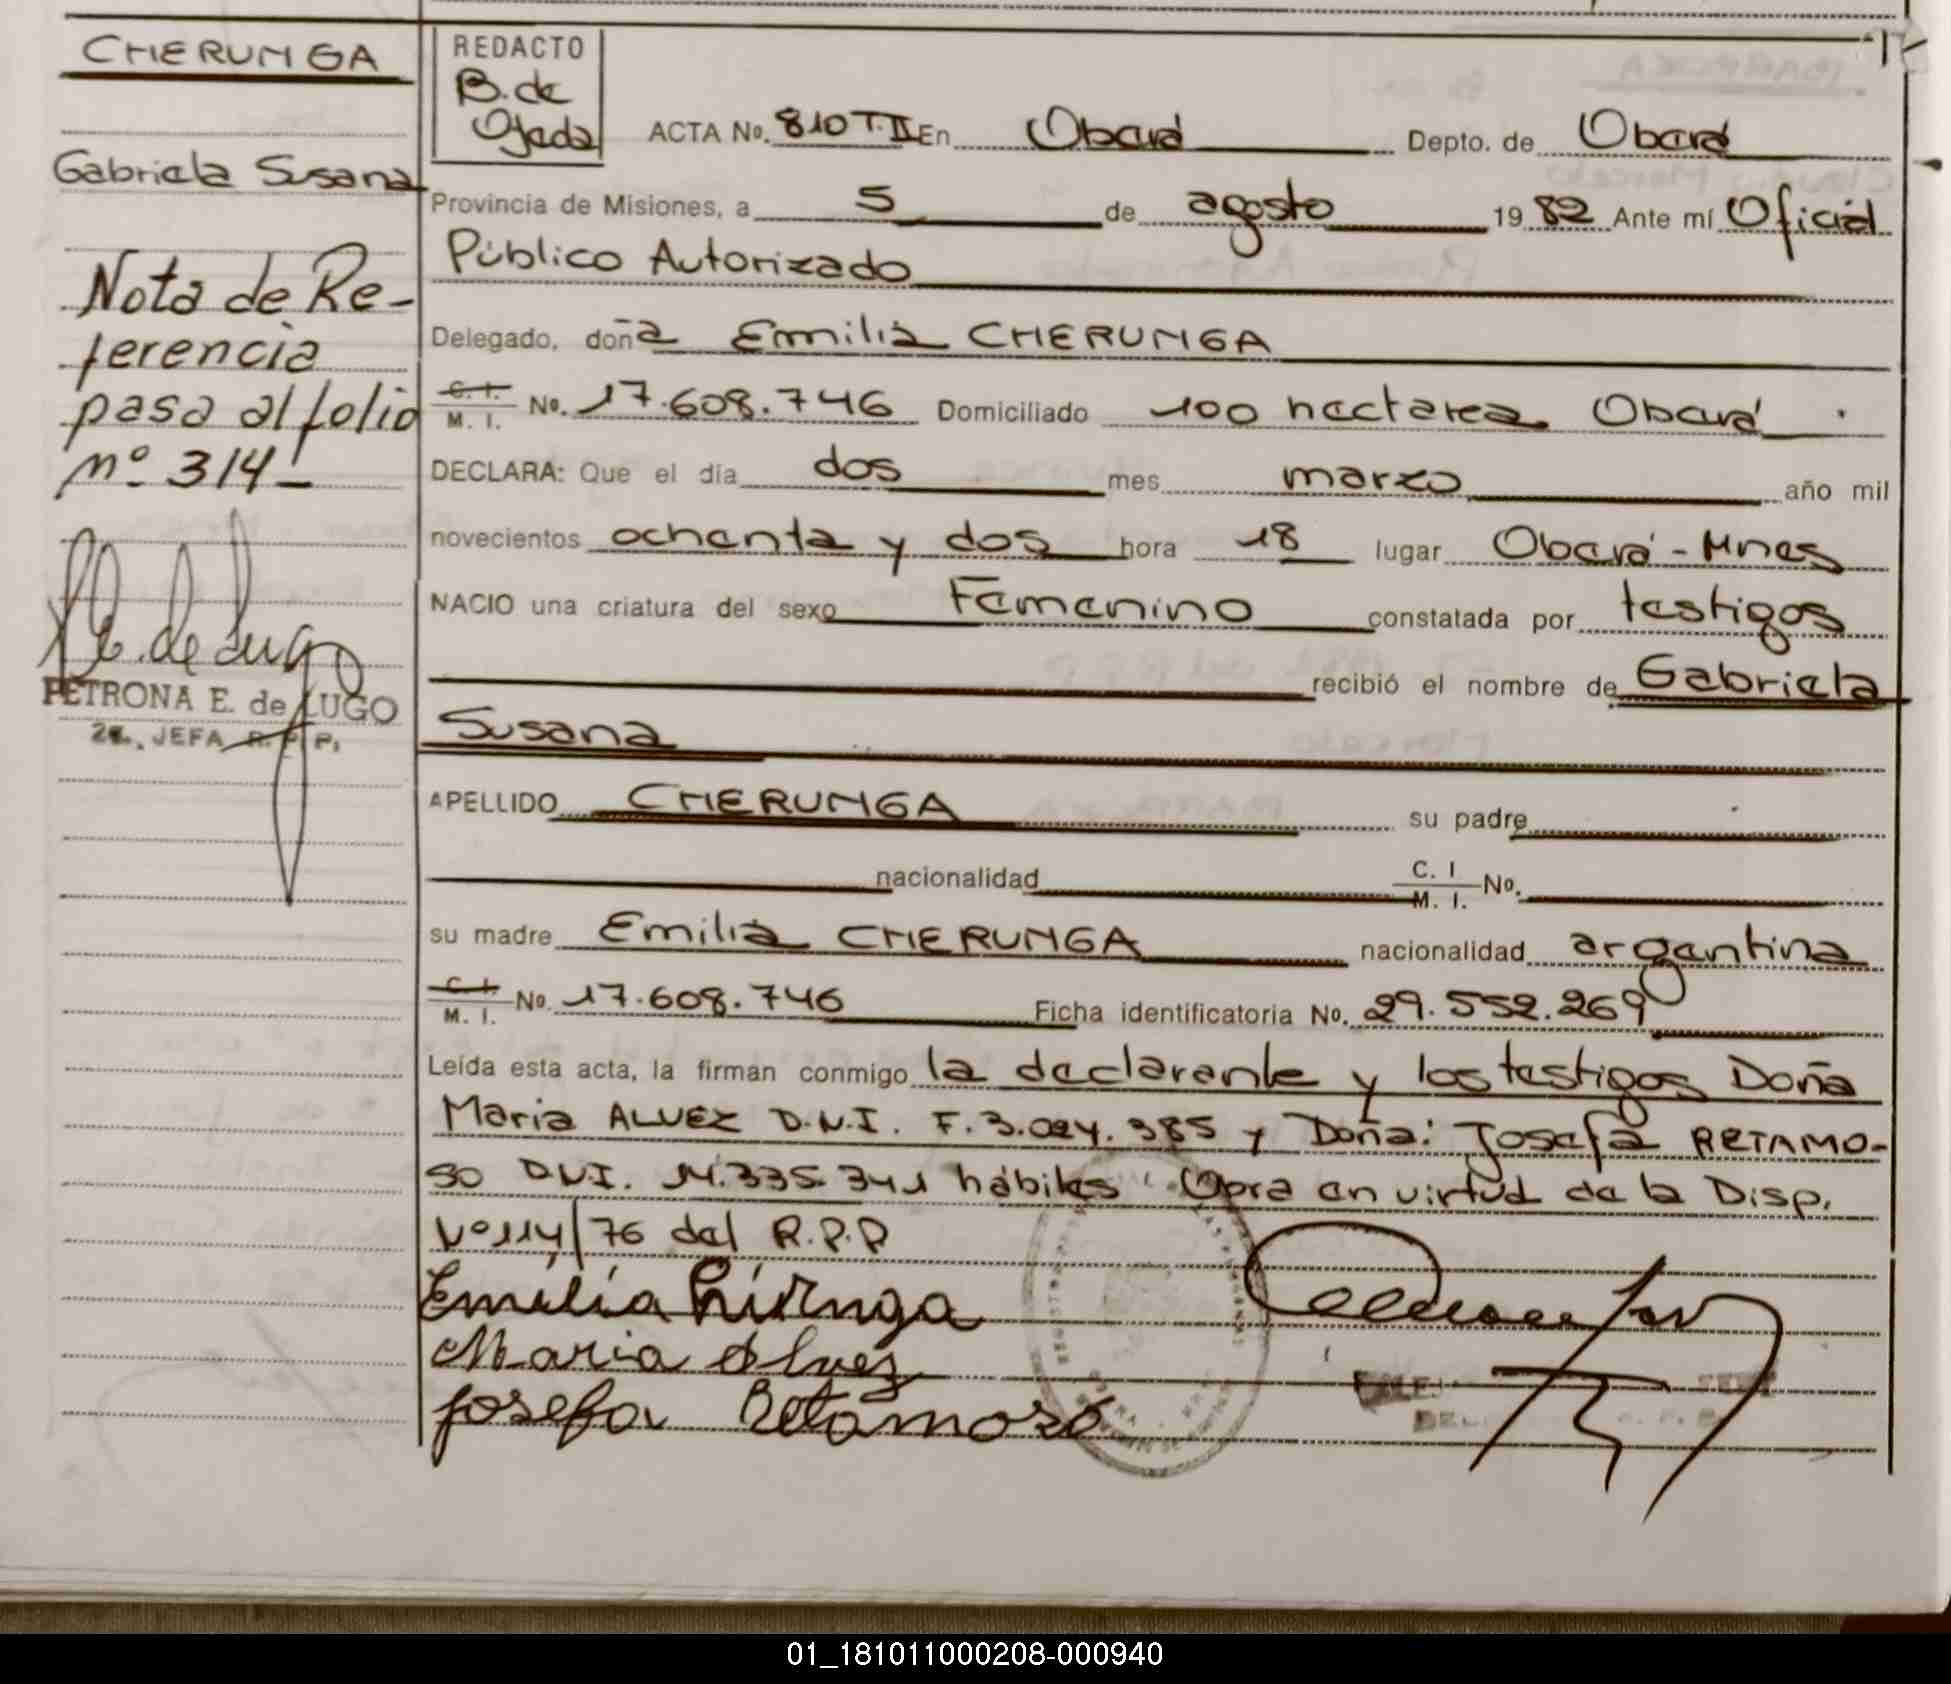 CHERUNGA
Gabriela Susana
Nota de Re-
ferencia
pasa al folio
nº 314-
PETRONA E. de LUGO
2a. JEFA R. P. P.
REDACTO
B. de
Ojeda
ACTA No. 810 T. II En Oberá Depto. de Oberá
Provincia de Misiones, a 5 de agosto 19 82 Ante mí Oficial
Público Autorizado
Delegado, doña Emilia CHERUNGA
C. I. M. I. No. 17.608.746 Domiciliado 100 hectarea Oberá
DECLARA: Que el día dos mes marzo año mil
novecientos ochenta y dos hora 18 lugar Oberá - Mnes
NACIO una criatura del sexo Femenino constatada por testigos
recibió el nombre de Gabriela
Susana
APELLIDO CHERUNGA su padre
nacionalidad C. I M. I. No.
su madre Emilia CHERUNGA nacionalidad argentina
C. I. M. I. No. 17.608.746 Ficha identificatoria No. 29.552.269
Leída esta acta, la firman conmigo la declarante y los testigos Doña
Maria ALVEZ D.N.I. F. 3.024.385 y Doña: Josefa RETAMO-
SO DNI. 14.335.341 hábiles Obra en virtud de la Disp.
Nº 114/76 del R.P.P
Emilia
Maria Alvez
Josefa Retamoso
01_181011000208-000940